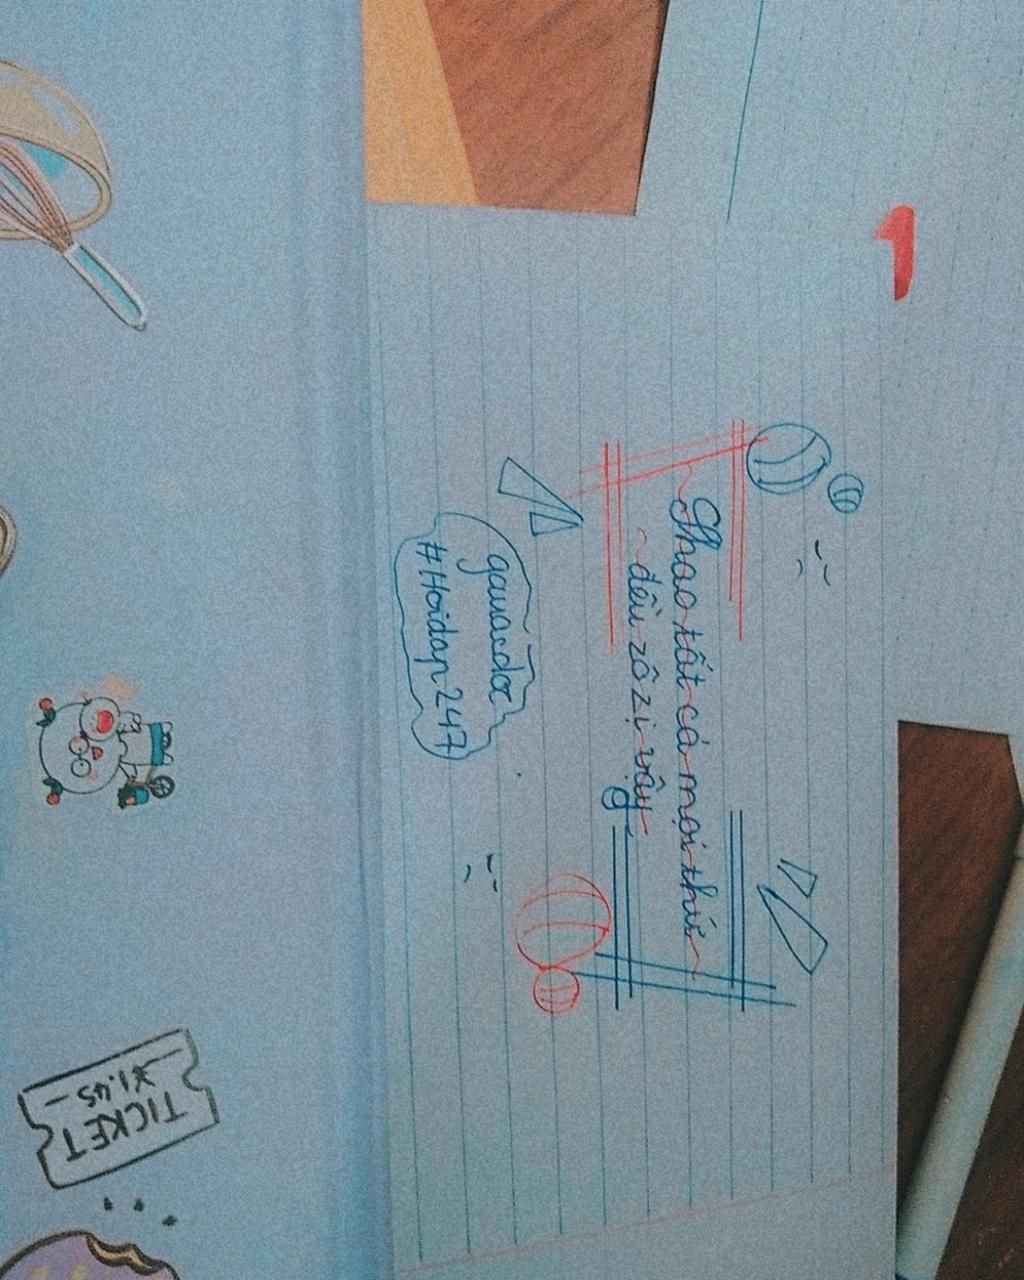 Ghao tất cả mọi thứ
đều zô zị vậy
#Hoidap247
TICKET
¥1.45
1